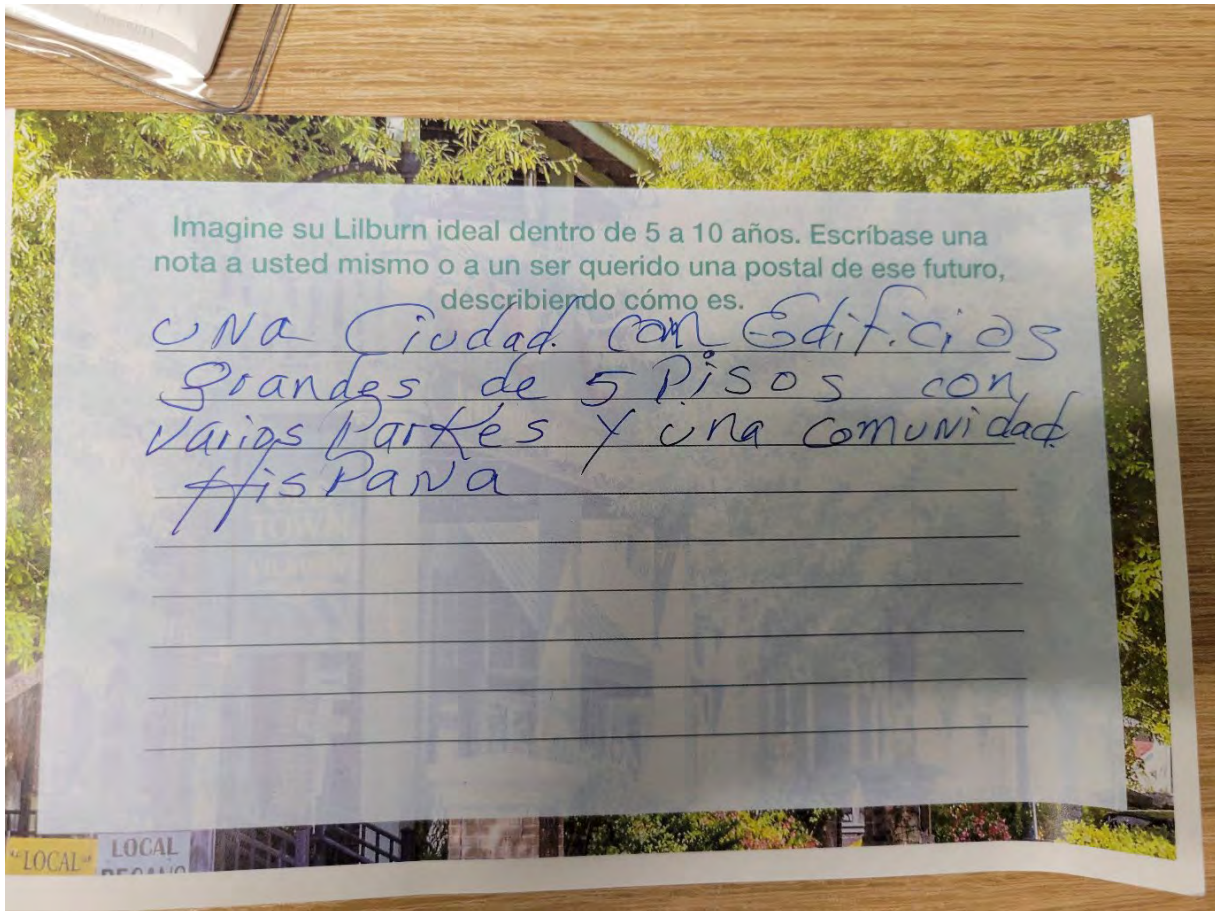 Imagine su Lilburn ideal dentro de 5 a 10 años. Escríbase una
nota a usted mismo o a un ser querido una postal de ese futuro,
describiendo cómo es.
UNa Ciudad con Edificios
grandes de 5 Pisos con
Varios Parkes Y una comuNidad
HisPaNa
TOWN
"LOCAL"
LOCAL